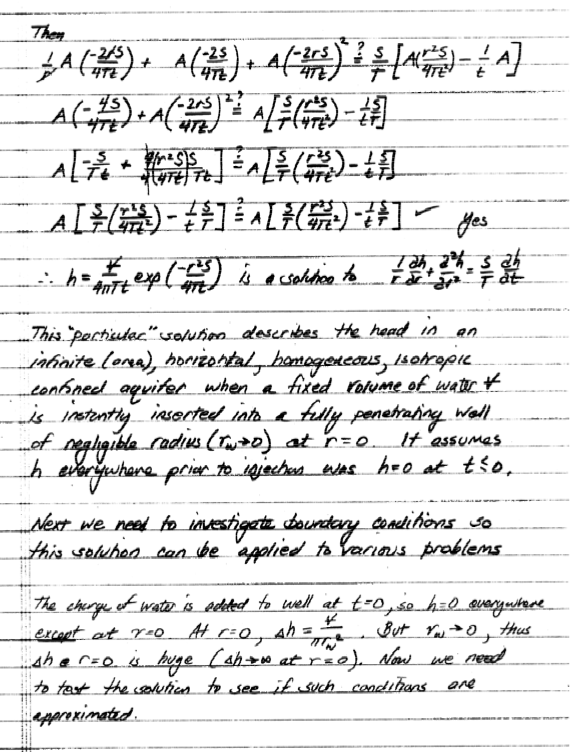 Then
1/r A(-2rS/4Tt) + A(-2S/4Tt) + A(-2rS/4Tt)² ?= S/T [A(r²S/4Tt²) - 1/t A]
A(-4S/4Tt) + A(-2rS/4Tt)² ?= A[S/T(r²S/4Tt²) - 1/t S/T]
A[-S/Tt + 4(r²S)S/4(4Tt)Tt] ?= A[S/T(r²S/4Tt²) - 1/t S/T]
A[S/T(r²S/4Tt²) - 1/t S/T] ?= A[S/T(r²S/4Tt²) - 1/t S/T] ✓ Yes
∴ h = V/4πTt exp(-r²S/4Tt) is a solution to 1/r ∂h/∂r + ∂²h/∂r² = S/T ∂h/∂t
This "particular" solution describes the head in an
infinite (area), horizontal, homogeneous, isotropic
confined aquifer when a fixed volume of water V
is instantly inserted into a fully penetrating well
of negligible radius (r_w→0) at r=0. It assumes
h everywhere prior to injection was h=0 at t≤0.
Next we need to investigate boundary conditions so
this solution can be applied to various problems
The charge of water is added to well at t=0, so h=0 everywhere
except at r=0. At r=0, Δh = V/πr_w². But r_w→0, thus
Δh @ r=0 is huge (Δh→∞ at r=0). Now we need
to test the solution to see if such conditions are
approximated.